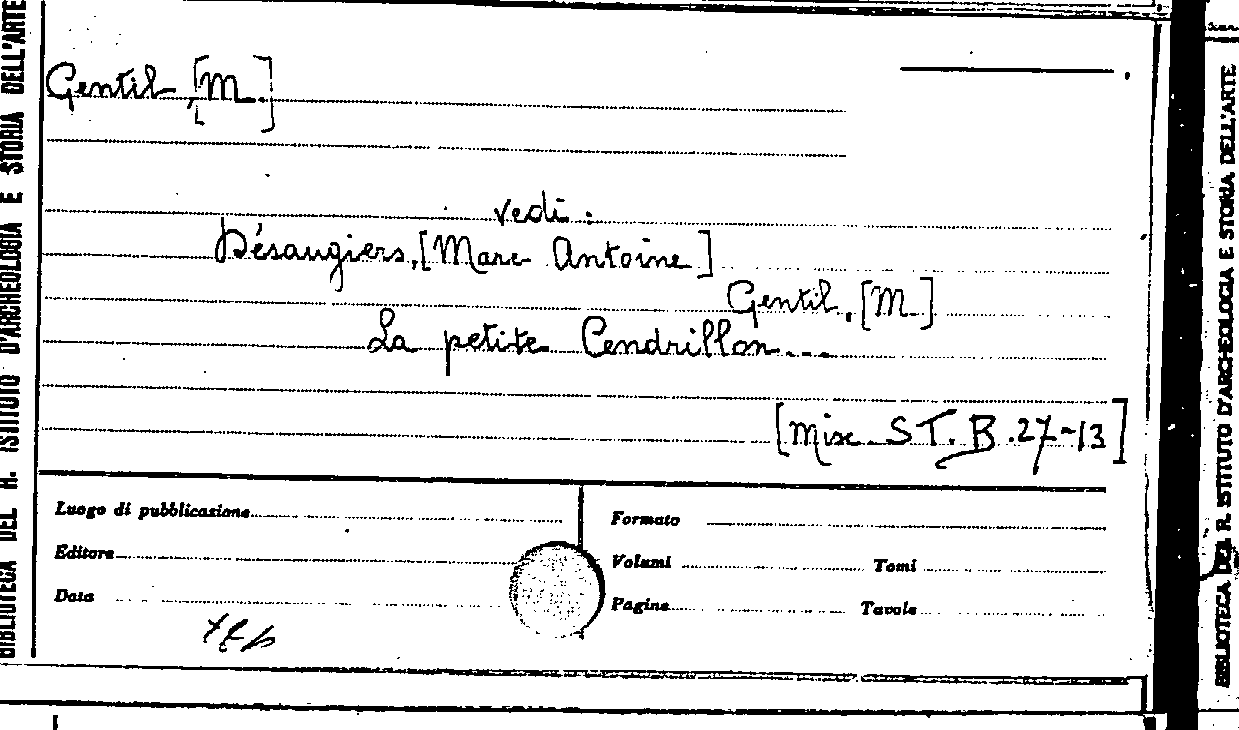 BIBLIOTECA DEL R. ISTITUTO D'ARCHEOLOGIA E STORIA DELL'ARTE
Gentil, [M.]
vedi:
Désaugiers, [Marc Antoine]
Gentil, [M.]
La petite Cendrillon...
[Misc. ST. B. 27-13]
Luogo di pubblicazione
Editore
Data
Formato
Volumi Tomi
Pagine Tavole
BIBLIOTECA DEL R. ISTITUTO D'ARCHEOLOGIA E STORIA DELL'ARTE